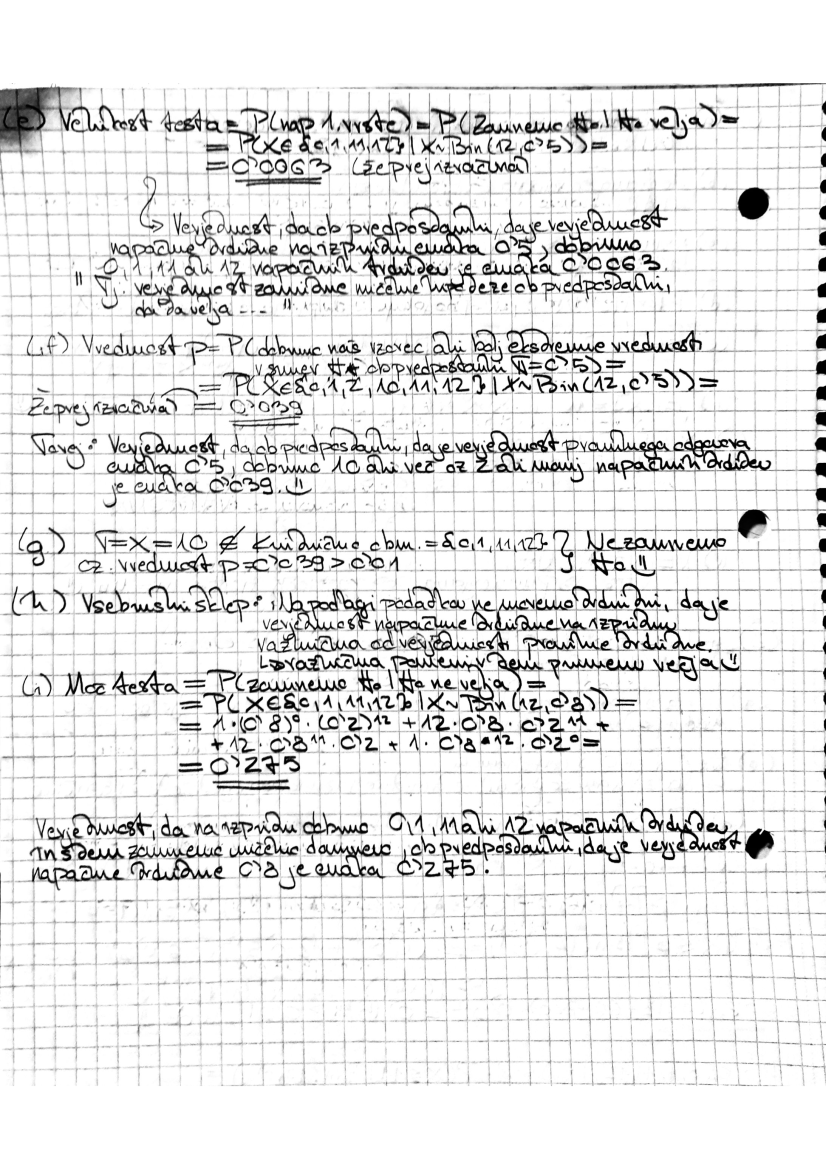 (e) Velikost testa = P(nap 1. vrste) = P(Zavrnemo H0 | H0 velja) =
= P(X∈{0,1,11,12} | X~Bin(12, 0'5)) =
= 0'0063 (že prej izračuna)
↳ Verjetnost, da ob predpostavki, da je verjetnost
napačne trditve na izpitu enaka 0'5, dobimo
0, 1, 11 ali 12 napačnih trditev je enaka 0'0063.
" Tj. verjetnost zavrnitve ničelne hipoteze ob predpostavki,
da ta velja ... "
(f) Vrednost p = P(dobimo naš vzorec ali bolj ekstremne vrednosti
v smer H1 ob predpostavki π=0'5) =
= P(X∈{0,1,2,10,11,12} | X~Bin(12, 0'5)) =
Že prej izračuna = 0'039
Torej: Verjetnost, da ob predpostavki, da je verjetnost pravilnega odgovora
enaka 0'5, dobimo 10 ali več oz 2 ali manj napačnih trditev
je enaka 0'039.
(g) T=X=10 ∉ Kritično obm. = {0,1,11,12} } Ne zavrnemo
oz. vrednost p=0'039 > 0'01 } H0
(h) Vsebinski sklep: Na podlagi podatkov ne moremo trditi, da je
verjetnost napačne trditve na izpitu
različna od verjetnosti pravilne trditve.
↳ različna pomeni v tem primeru večja
(i) Moč testa = P(zavrnemo H0 | H0 ne velja) =
= P(X∈{0,1,11,12} | X~Bin(12, 0'8)) =
= 1·(0'8)⁰·(0'2)¹² + 12·0'8·0'2¹¹ +
+ 12·0'8¹¹·0'2 + 1·0'8¹²·0'2⁰ =
= 0'275
Verjetnost, da na izpitu dobimo 0, 1, 11 ali 12 napačnih trditev
in s tem zavrnemo ničelno domnevo, ob predpostavki, da je verjetnost
napačne trditve 0'8 je enaka 0'275.